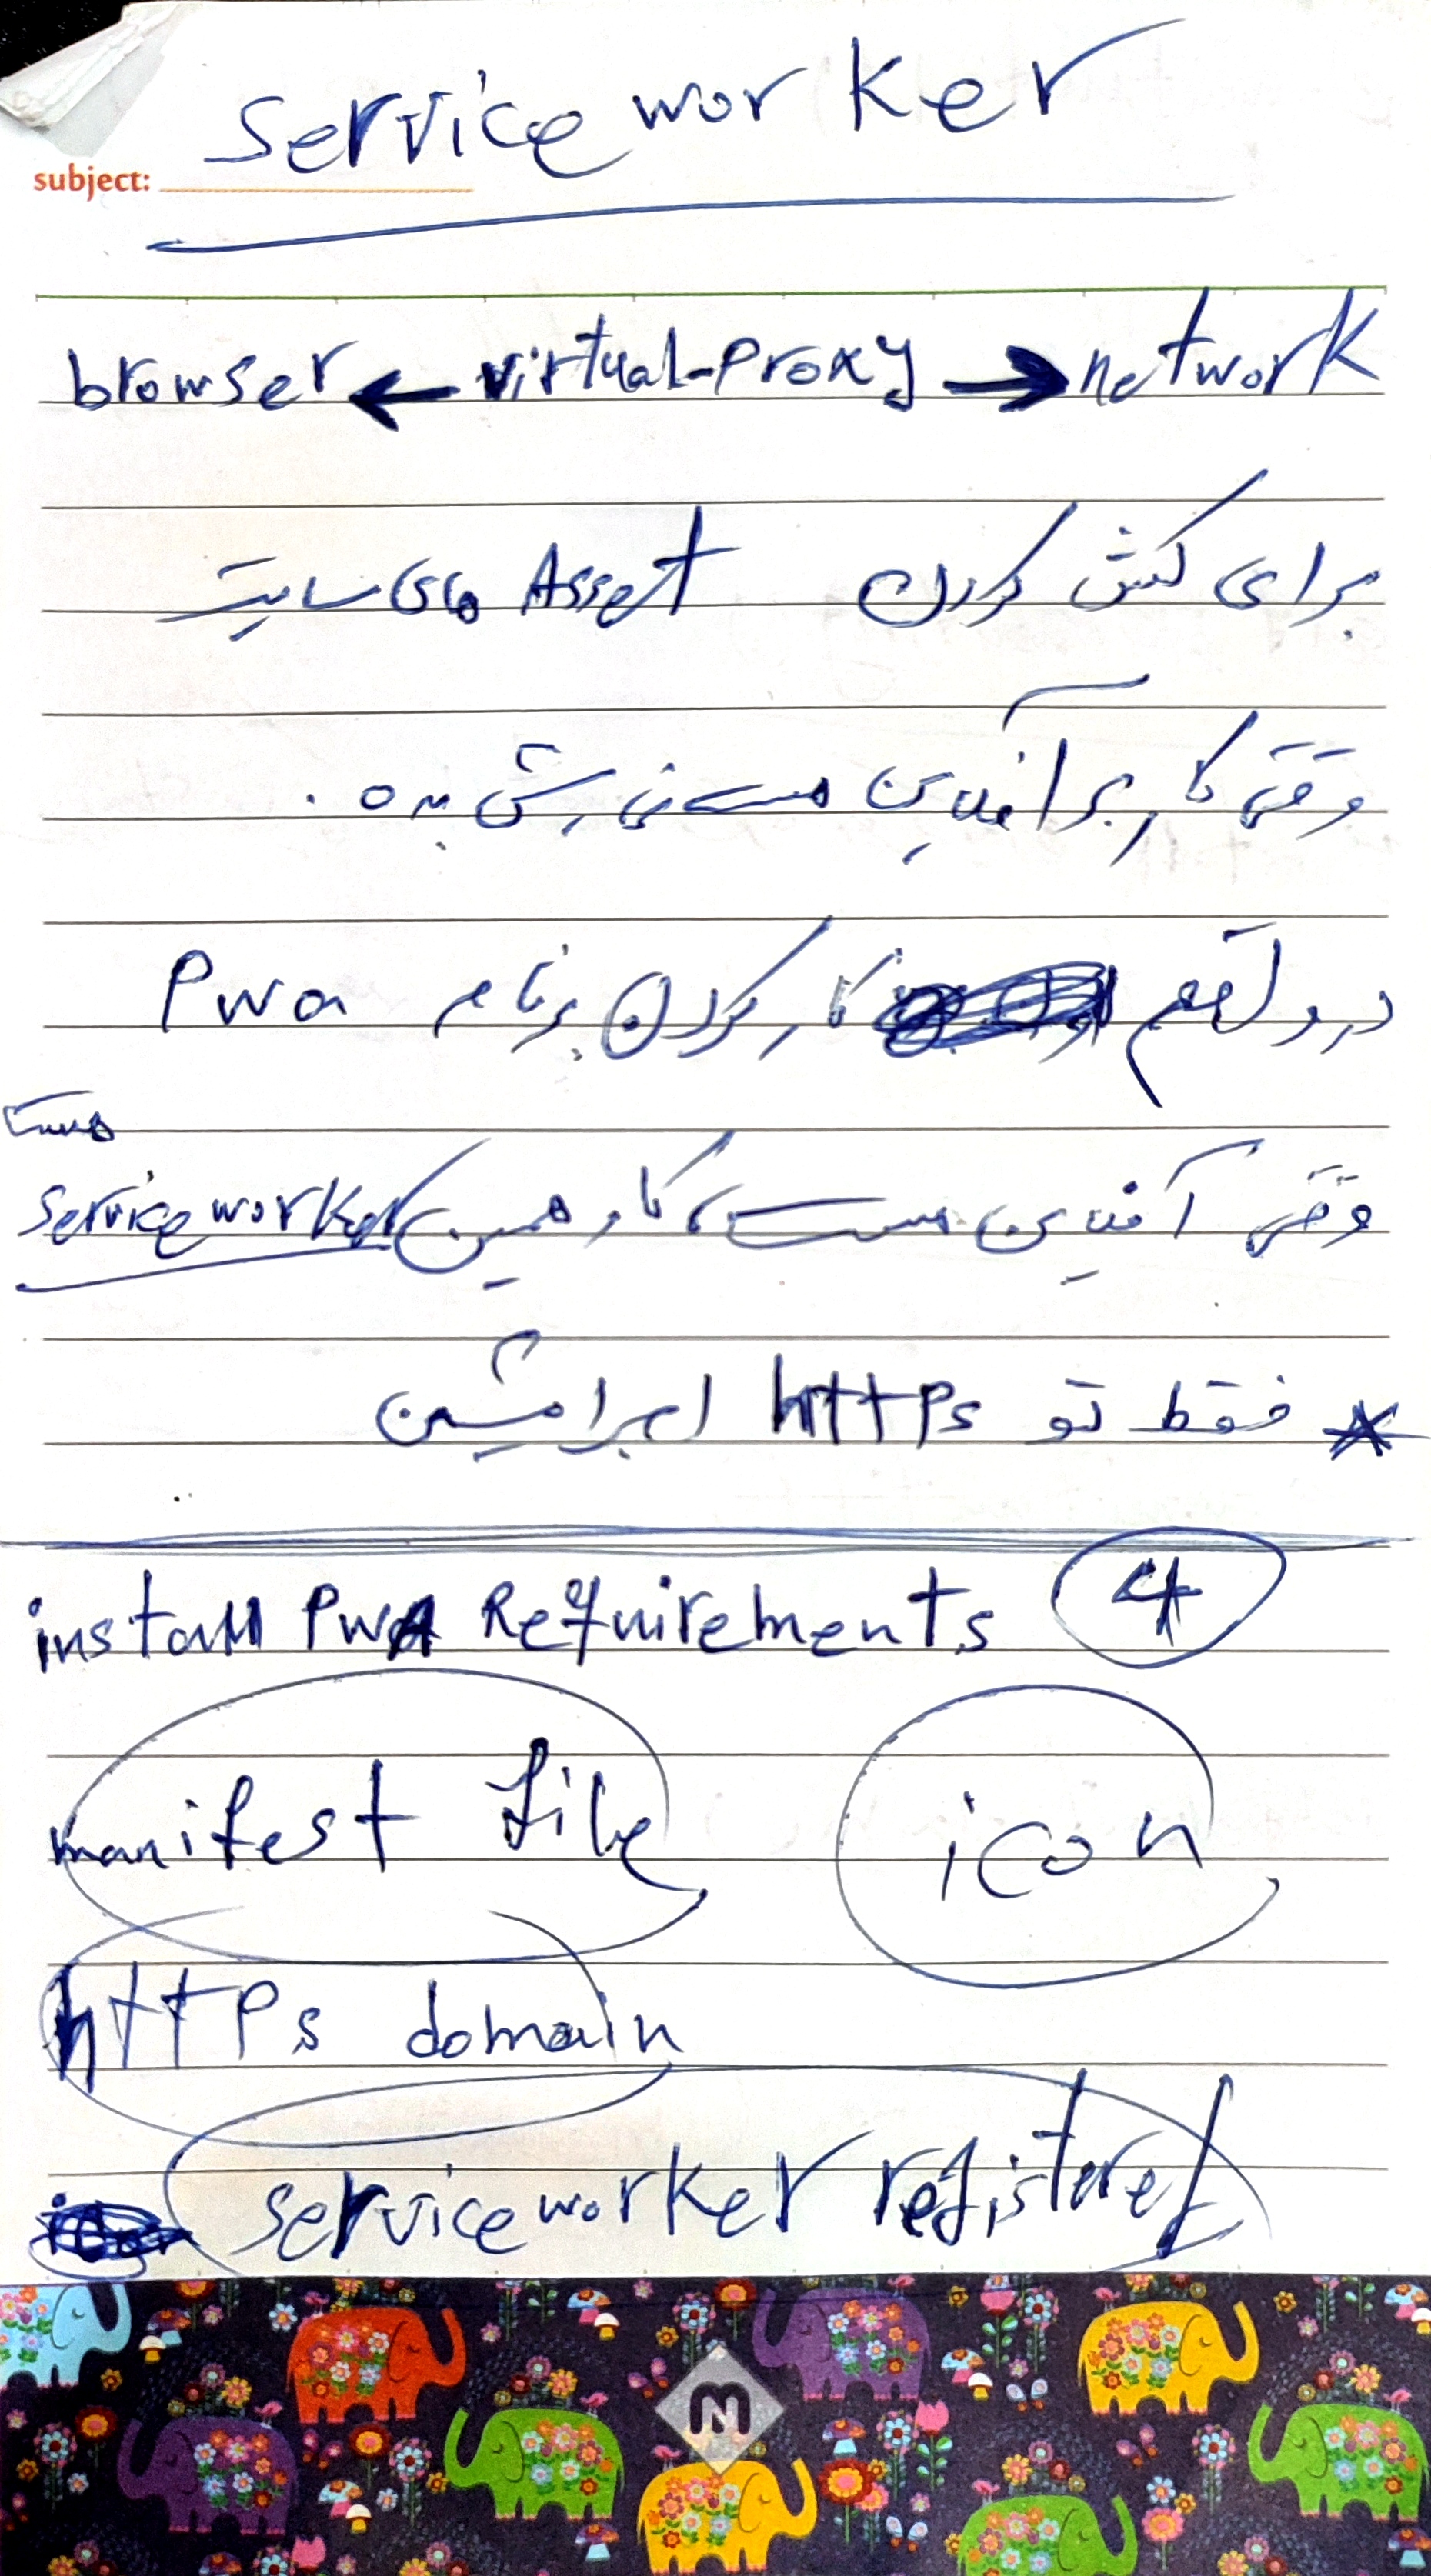 service worker
subject:
browser ← virtual-proxy → network
برای کش کردن Asset های سایت
وقتی کاربر آفلاین هست نمایش بده.
در واقع کار کردن برنامه Pwa
وقتی آفلاین هست کار همین service worker
هست
* فقط تو https اجرا میشن
install PWA Requirements 4
manifest file icon
https domain
service worker registered
M